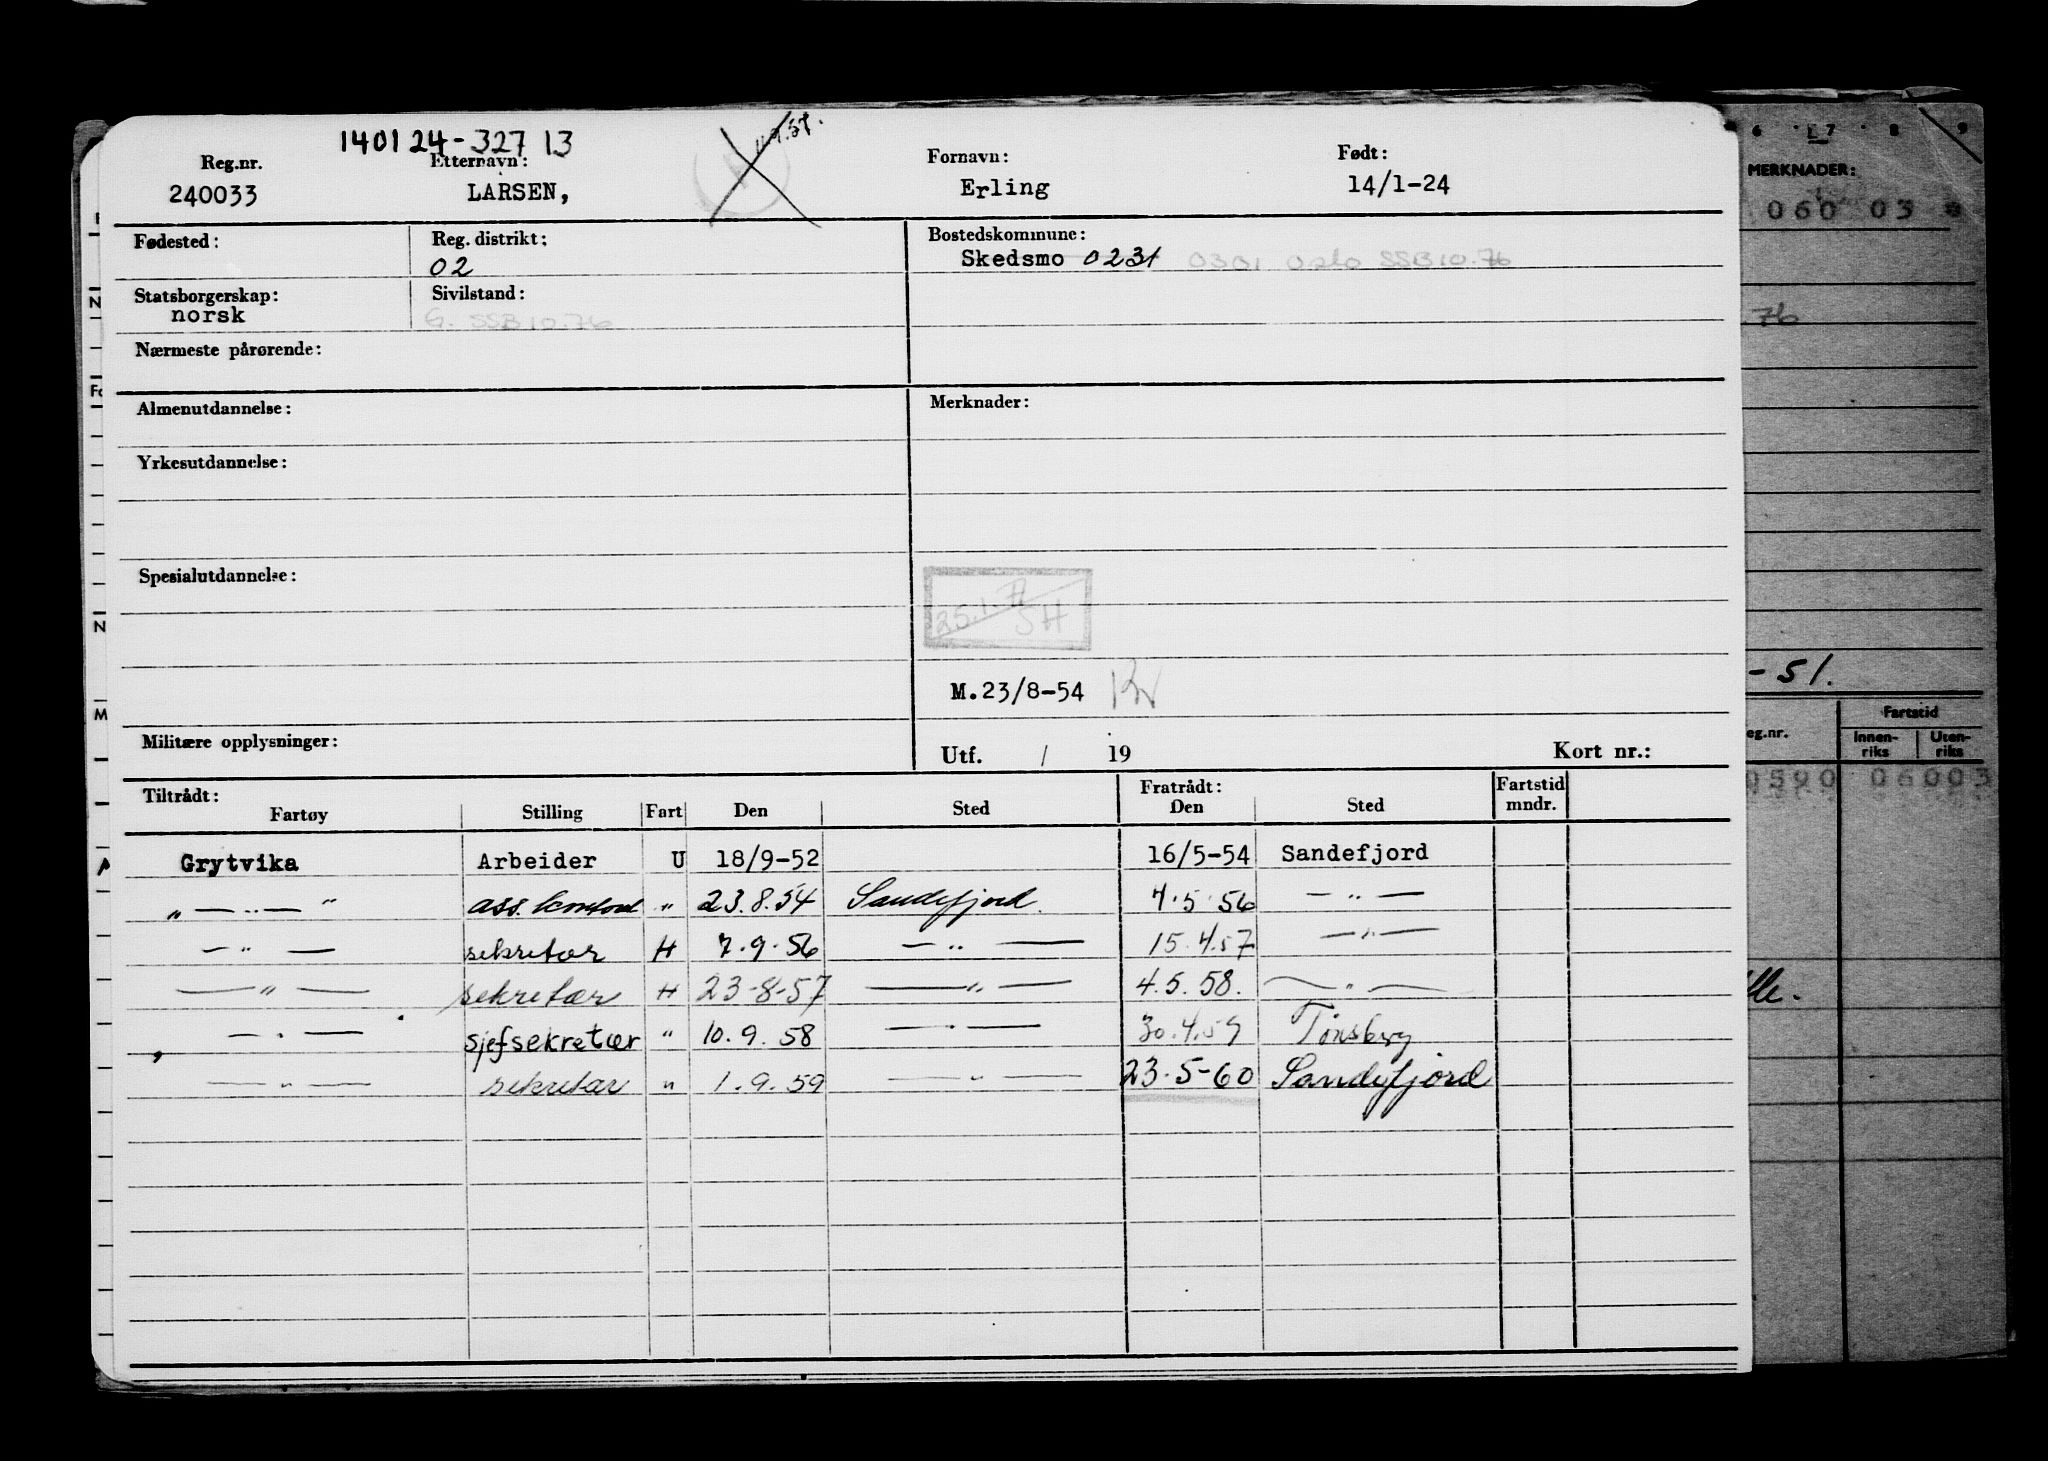 140124-327 13
Reg.nr. Etternavn: Fornavn: Født:
240033 LARSEN, Erling 14/1-24
Fødested: Reg. distrikt: Bostedskommune:
02 Skedsmo 0231 0301 Oslo SSB10.76
Statsborgerskap: Sivilstand:
norsk G. SSB10.76
Nærmeste pårørende:
Almenutdannelse: Merknader:
Yrkesutdannelse:
Spesialutdannelse:
25.1.71
SH
M.23/8-54
Militære opplysninger: Utf. / 19 Kort nr.:
Tiltrådt: Fratrådt: Fartstid
Fartøy Stilling Fart Den Sted Den Sted mndr.
Grytvika Arbeider U 18/9-52 16/5-54 Sandefjord
„ — „ — " ass. " 23.8.54 Sandefjord 7.5.56 — " —
— " — sekretær H 7.9.56 — " — 15.4.57 — " —
— " — sekretær H 23-8-57 — " — 4.5.58. — " —
— " — sjefsekretær " 10.9.58 — " — 30.4.59 Tønsberg
— " — sekretær " 1.9.59 — " — 23-5-60 Sandefjord
6 7 8 9
MERKNADER:
060 03
76
-51.
eg.nr. Fartstid
Innen-riks Uten-riks
0590 06003